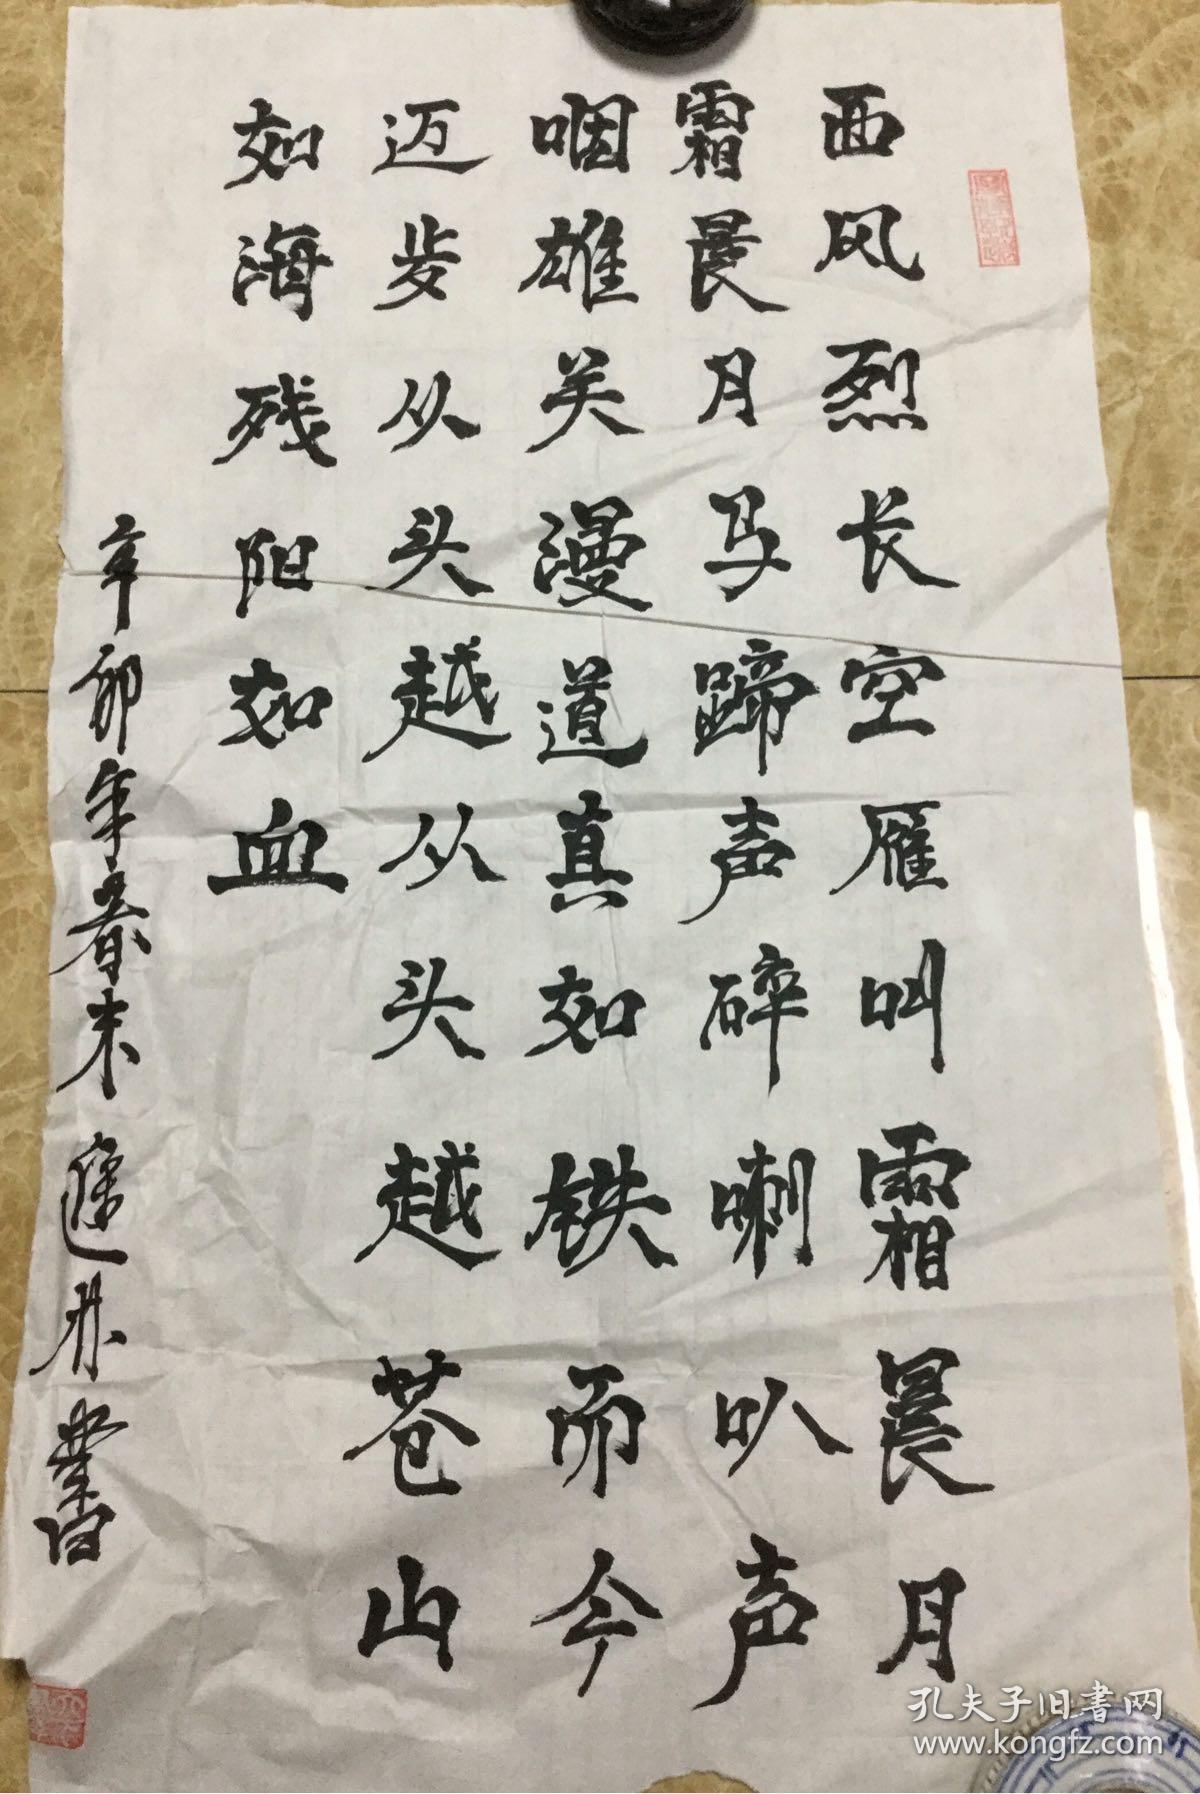 西风烈长空雁叫霜晨月
霜晨月马蹄声碎喇叭声
咽雄关漫道真如铁而今
迈步从头越从头越苍山
如海残阳如血
辛卯年春末 林書
孔夫子旧书网
www.kongfz.com